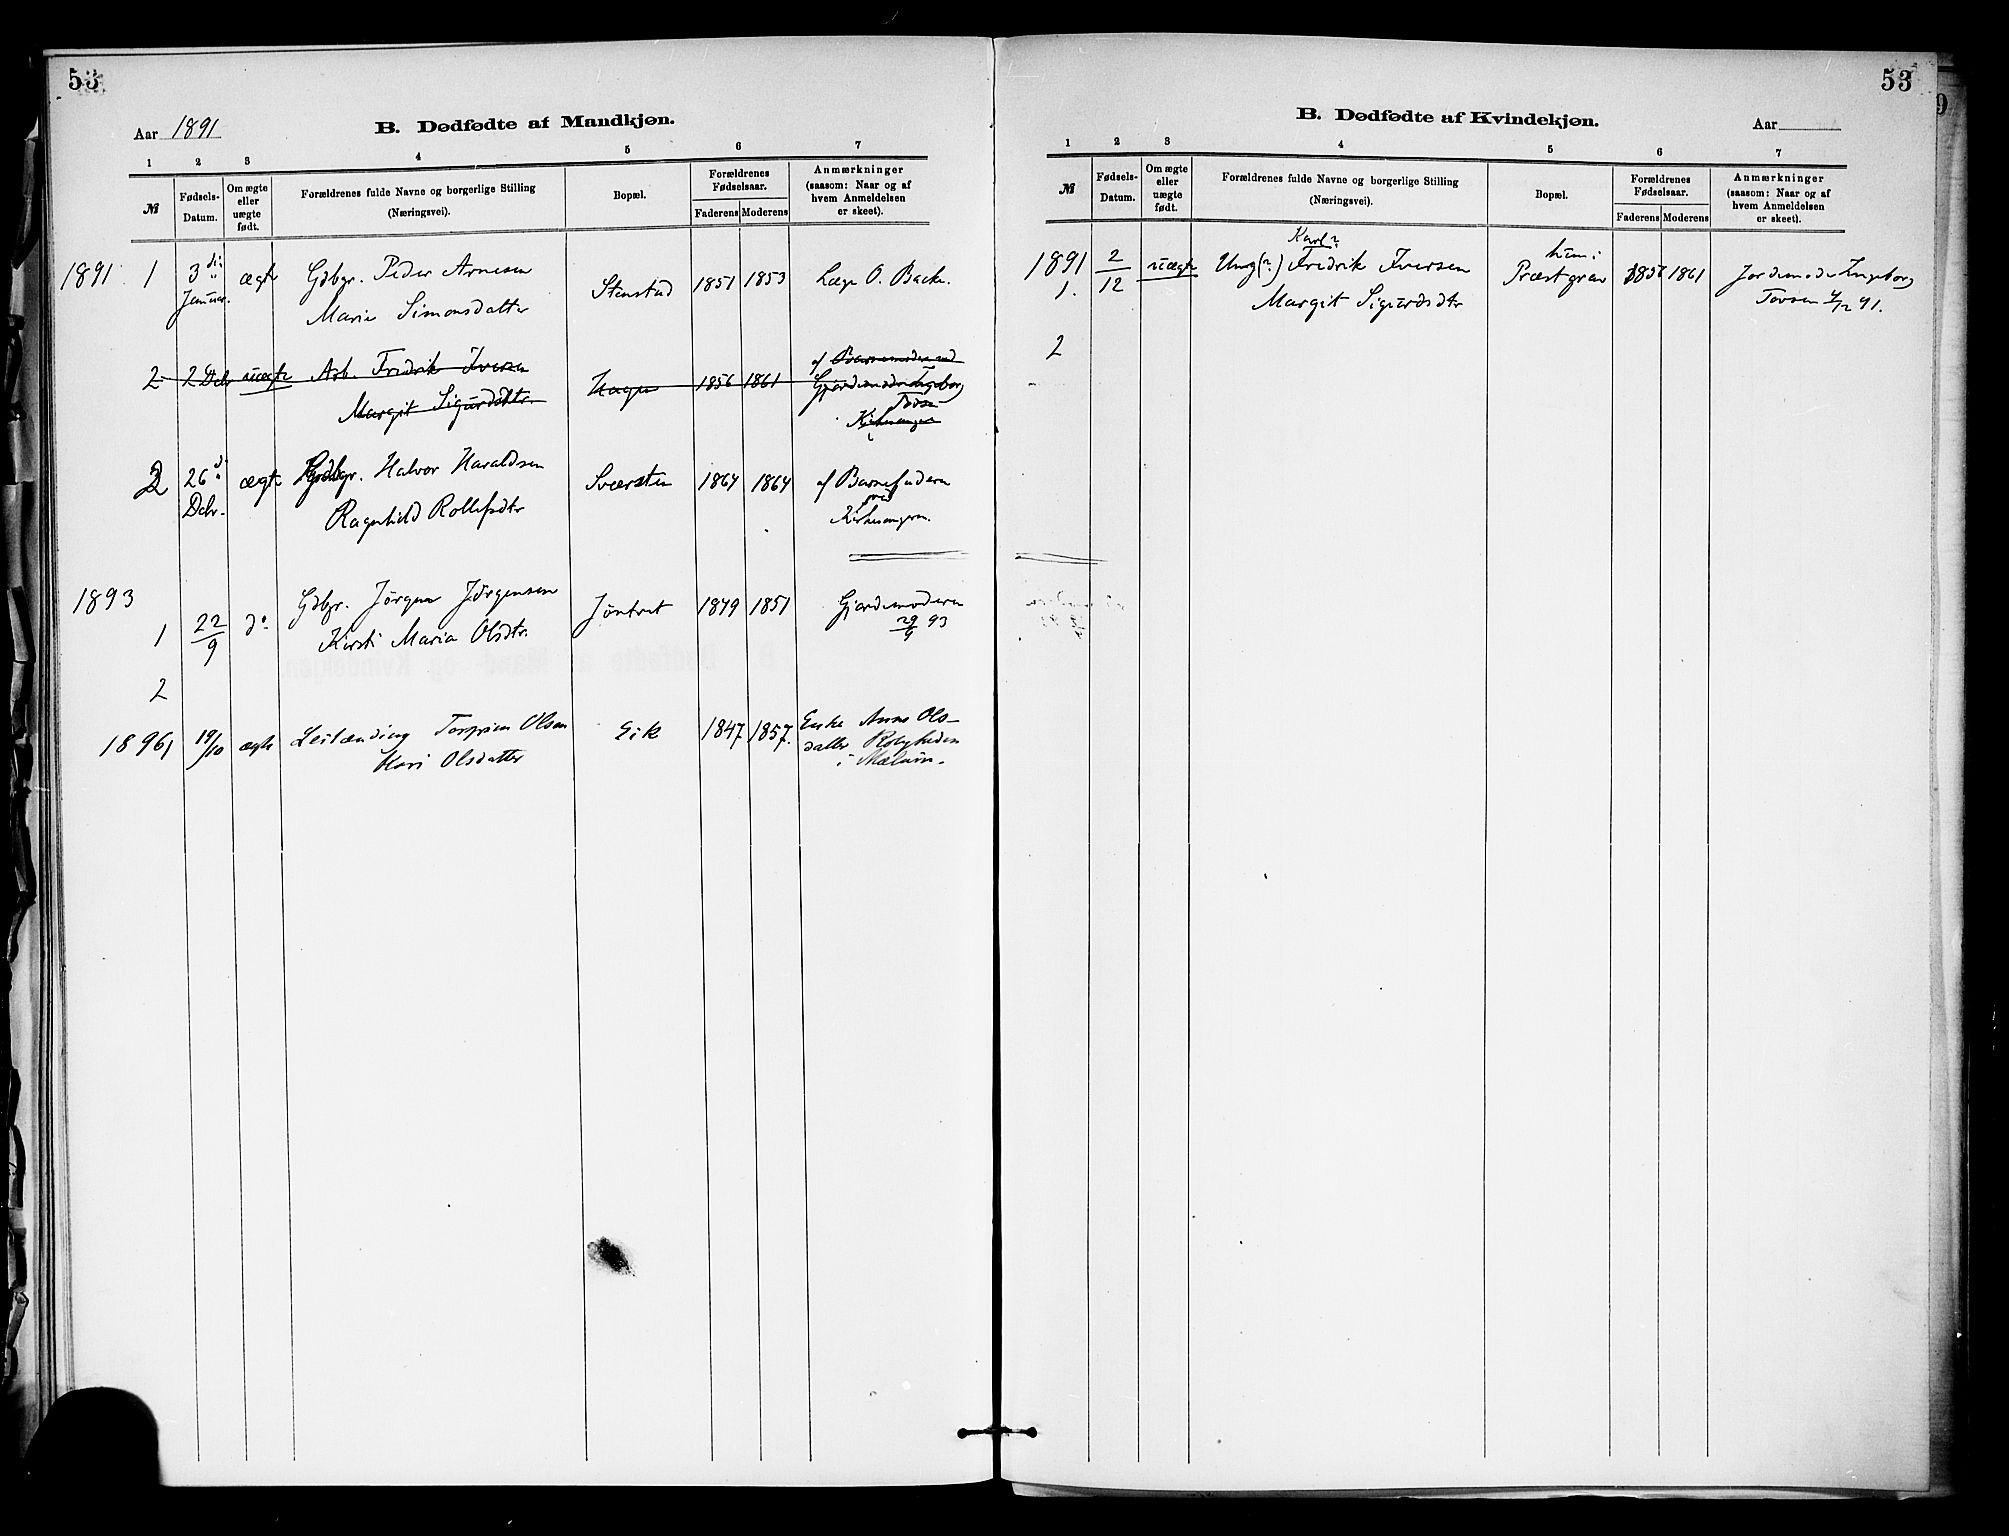 53
Aar 1891
B. Dødfødte af Mandkjøn.
1 2 3 4 5 6 7
№ Fødsels-Datum. Om ægte eller uægte født. Forældrenes fulde Navne og borgerlige Stilling (Næringsvei). Bopæl. Forældrenes Fødselsaar. Faderens Moderens Anmærkninger (saasom: Naar og af hvem Anmeldelsen er skeet).
1891 1 3 ægte Gdbgr. Peder Arnesen Stenstad 1851 1853 Læge O. Backe.
Januar. Maria Simonsdatter
2 2 Dcbr uægte Arb. Fredrik Iversen Hagen 1856 1861 af Barnemoderen ved
Margit Sigurdsdtr. Gjordemoder Ingeborg
Kirkesangeren
2 26 ægte Gdbgr. Halvor Haraldsen Sværsten 1864 1864 af Barnefaderen
Dcbr. Ragnhild Rollefsdtr ved
Kirkesangeren.
1893
1 22/9 do Gdbgr. Jörgen Jörgensen Jöntret 1849 1851 Gjordemoderen
Kirsti Maria Olsdtr. 29/9 93
2
1896 1 19/10 ægte Leilænding Torgrim Olsen Eik 1847 1857. Enke Anne Ols-
Kari Olsdatter datter, Roligheden
i Mælum.
53
B. Dødfødte af Kvindekjøn.
Aar
1 2 3 4 5 6 7
№ Fødsels-Datum. Om ægte eller uægte født. Forældrenes fulde Navne og borgerlige Stilling (Næringsvei). Bopæl. Forældrenes Fødselsaar. Faderens Moderens Anmærkninger (saasom: Naar og af hvem Anmeldelsen er skeet).
Karl? hun:
1891 2/12 uægte Ung(?) Fredrik Iversen Præstgrav 1856 1861 Jordemoder Ingeborg
1. Margit Sigurdsdtr 91.
2